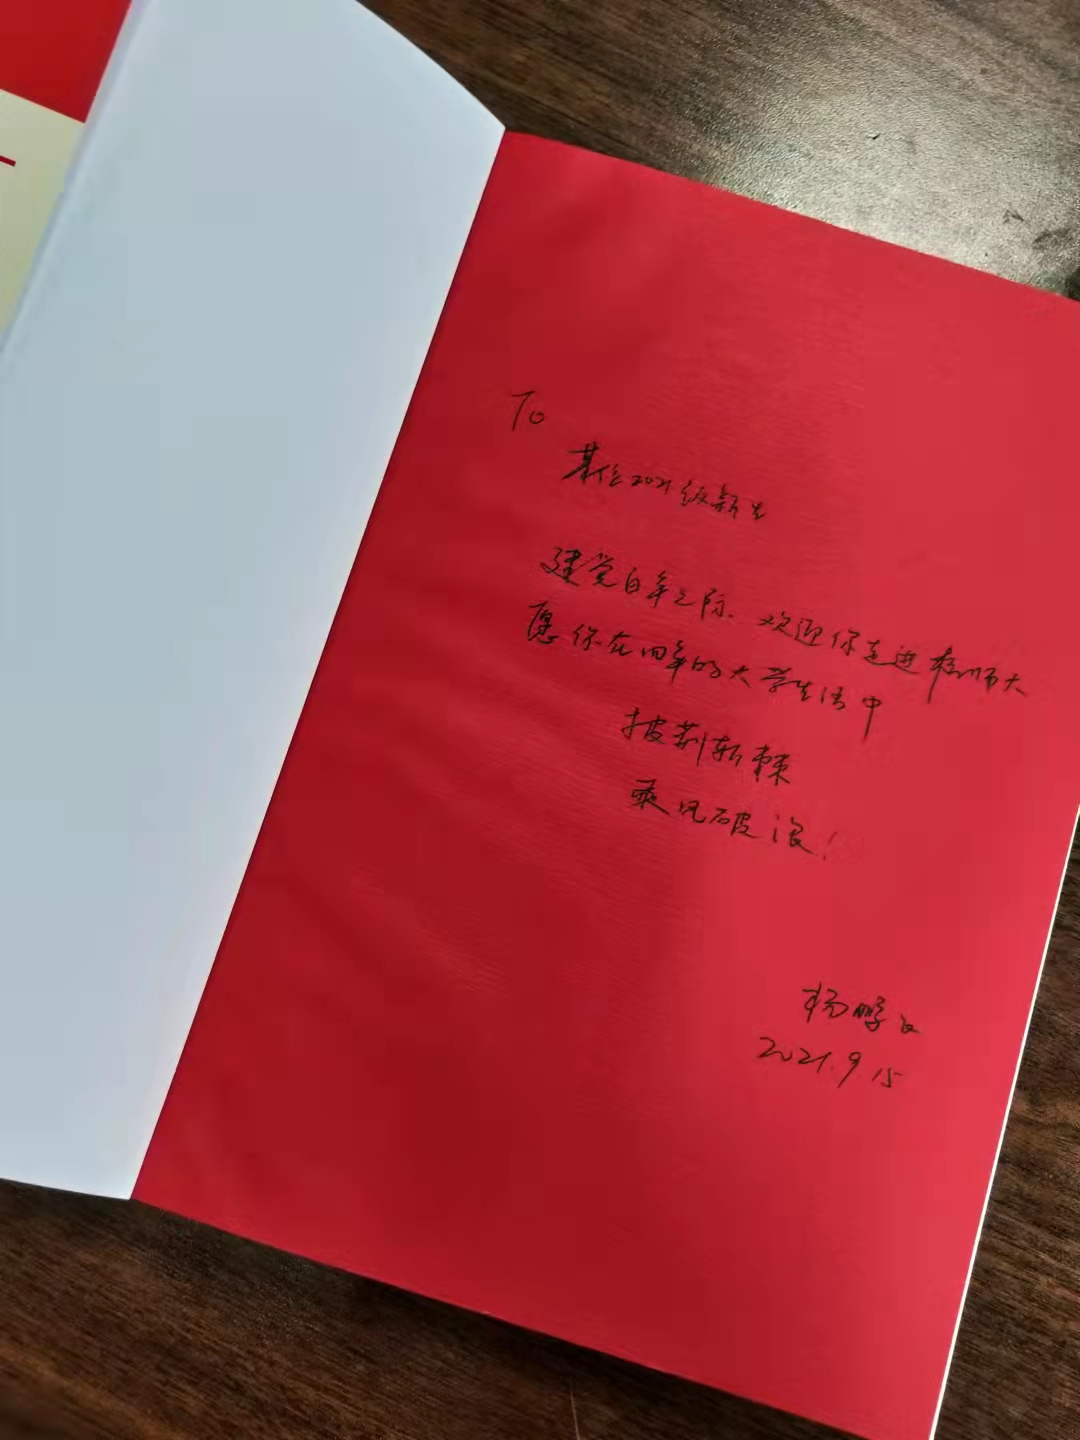 To
某位2021级新生
建党百年之际、欢迎你走进杭师大
愿你在四年的大学生活中
披荆斩棘
乘风破浪！
杨鹏
2021.9.15